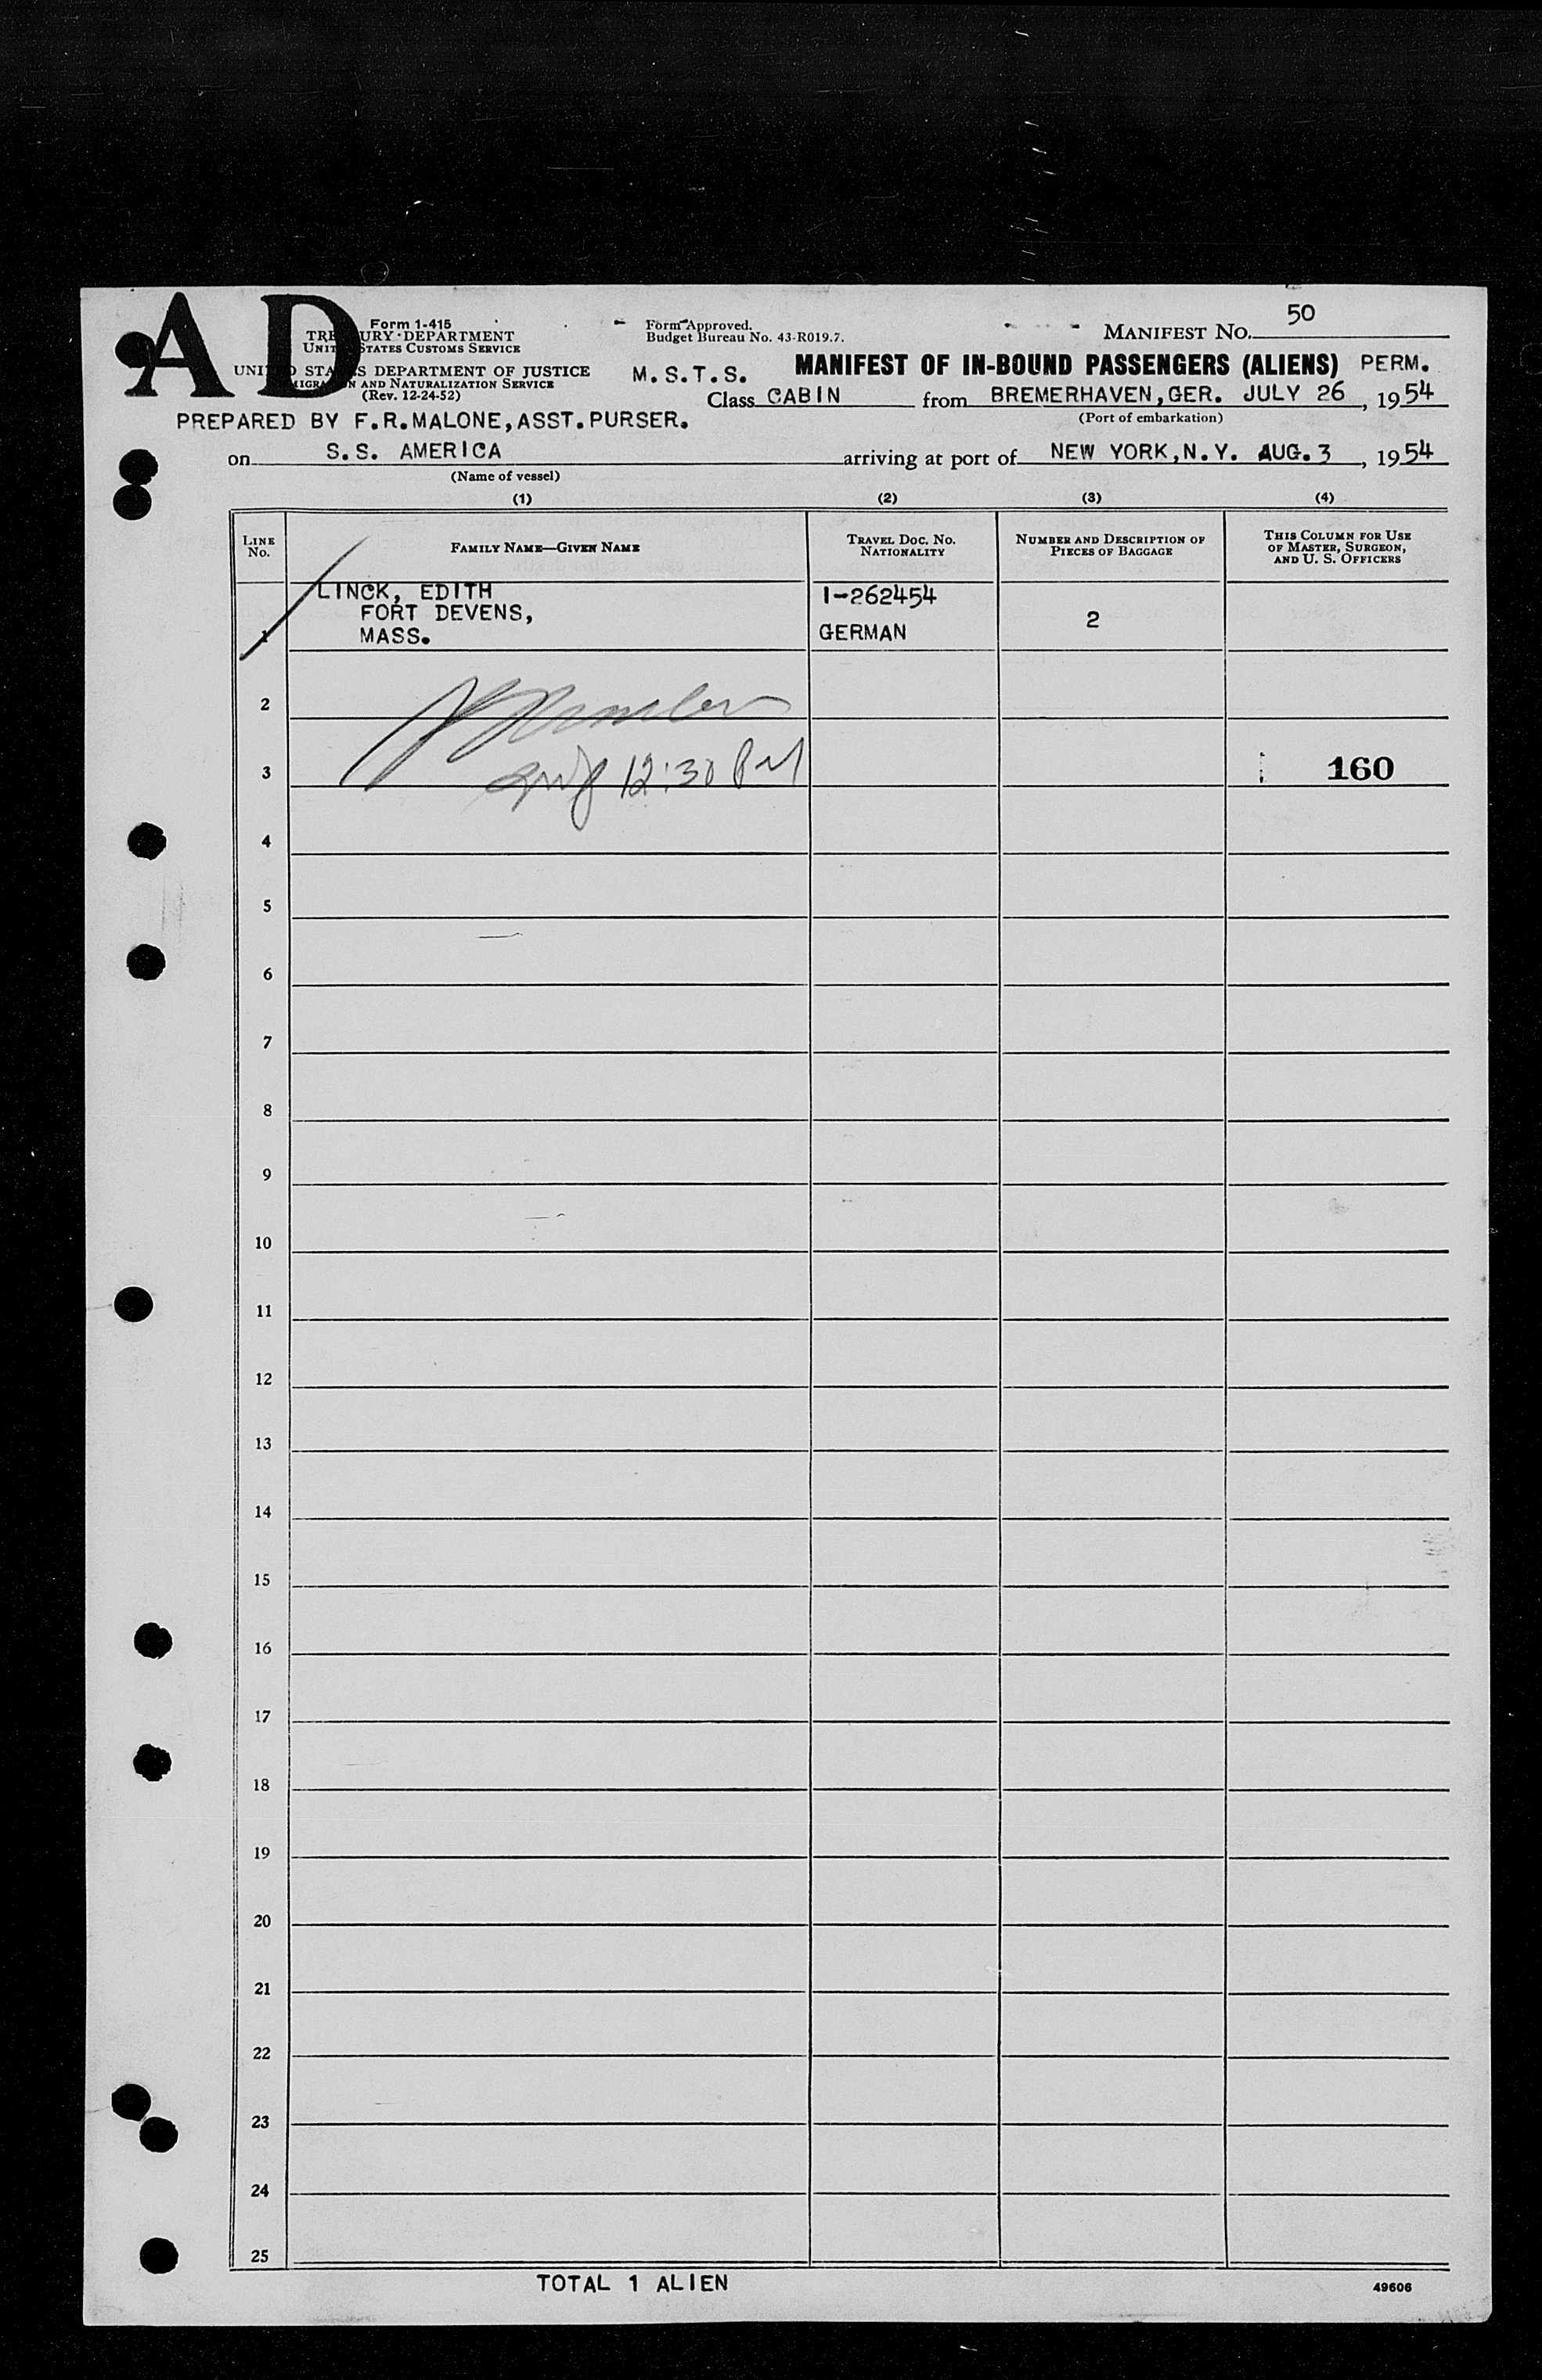 AD
Form 1-415
TREASURY DEPARTMENT
UNITED STATES CUSTOMS SERVICE
UNITED STATES DEPARTMENT OF JUSTICE
IMMIGRATION AND NATURALIZATION SERVICE
(Rev. 12-24-52)
Form Approved.
Budget Bureau No. 43-R019.7.
MANIFEST NO. 50
M.S.T.S. MANIFEST OF IN-BOUND PASSENGERS (ALIENS) PERM.
Class CABIN from BREMERHAVEN,GER. JULY 26, 1954
(Port of embarkation)
PREPARED BY F.R.MALONE,ASST.PURSER.
on S.S. AMERICA arriving at port of NEW YORK,N.Y. AUG.3, 1954
(Name of vessel)
(1) (2) (3) (4)
LINE No.
FAMILY NAME—GIVEN NAME
TRAVEL DOC. NO. NATIONALITY
NUMBER AND DESCRIPTION OF PIECES OF BAGGAGE
THIS COLUMN FOR USE OF MASTER, SURGEON, AND U. S. OFFICERS
LINCK, EDITH I-262454
FORT DEVENS,
1 MASS. GERMAN 2
2
3 12:30 PM 160
4
5
6
7
8
9
10
11
12
13
14
15
16
17
18
19
20
21
22
23
24
25
TOTAL 1 ALIEN
49606